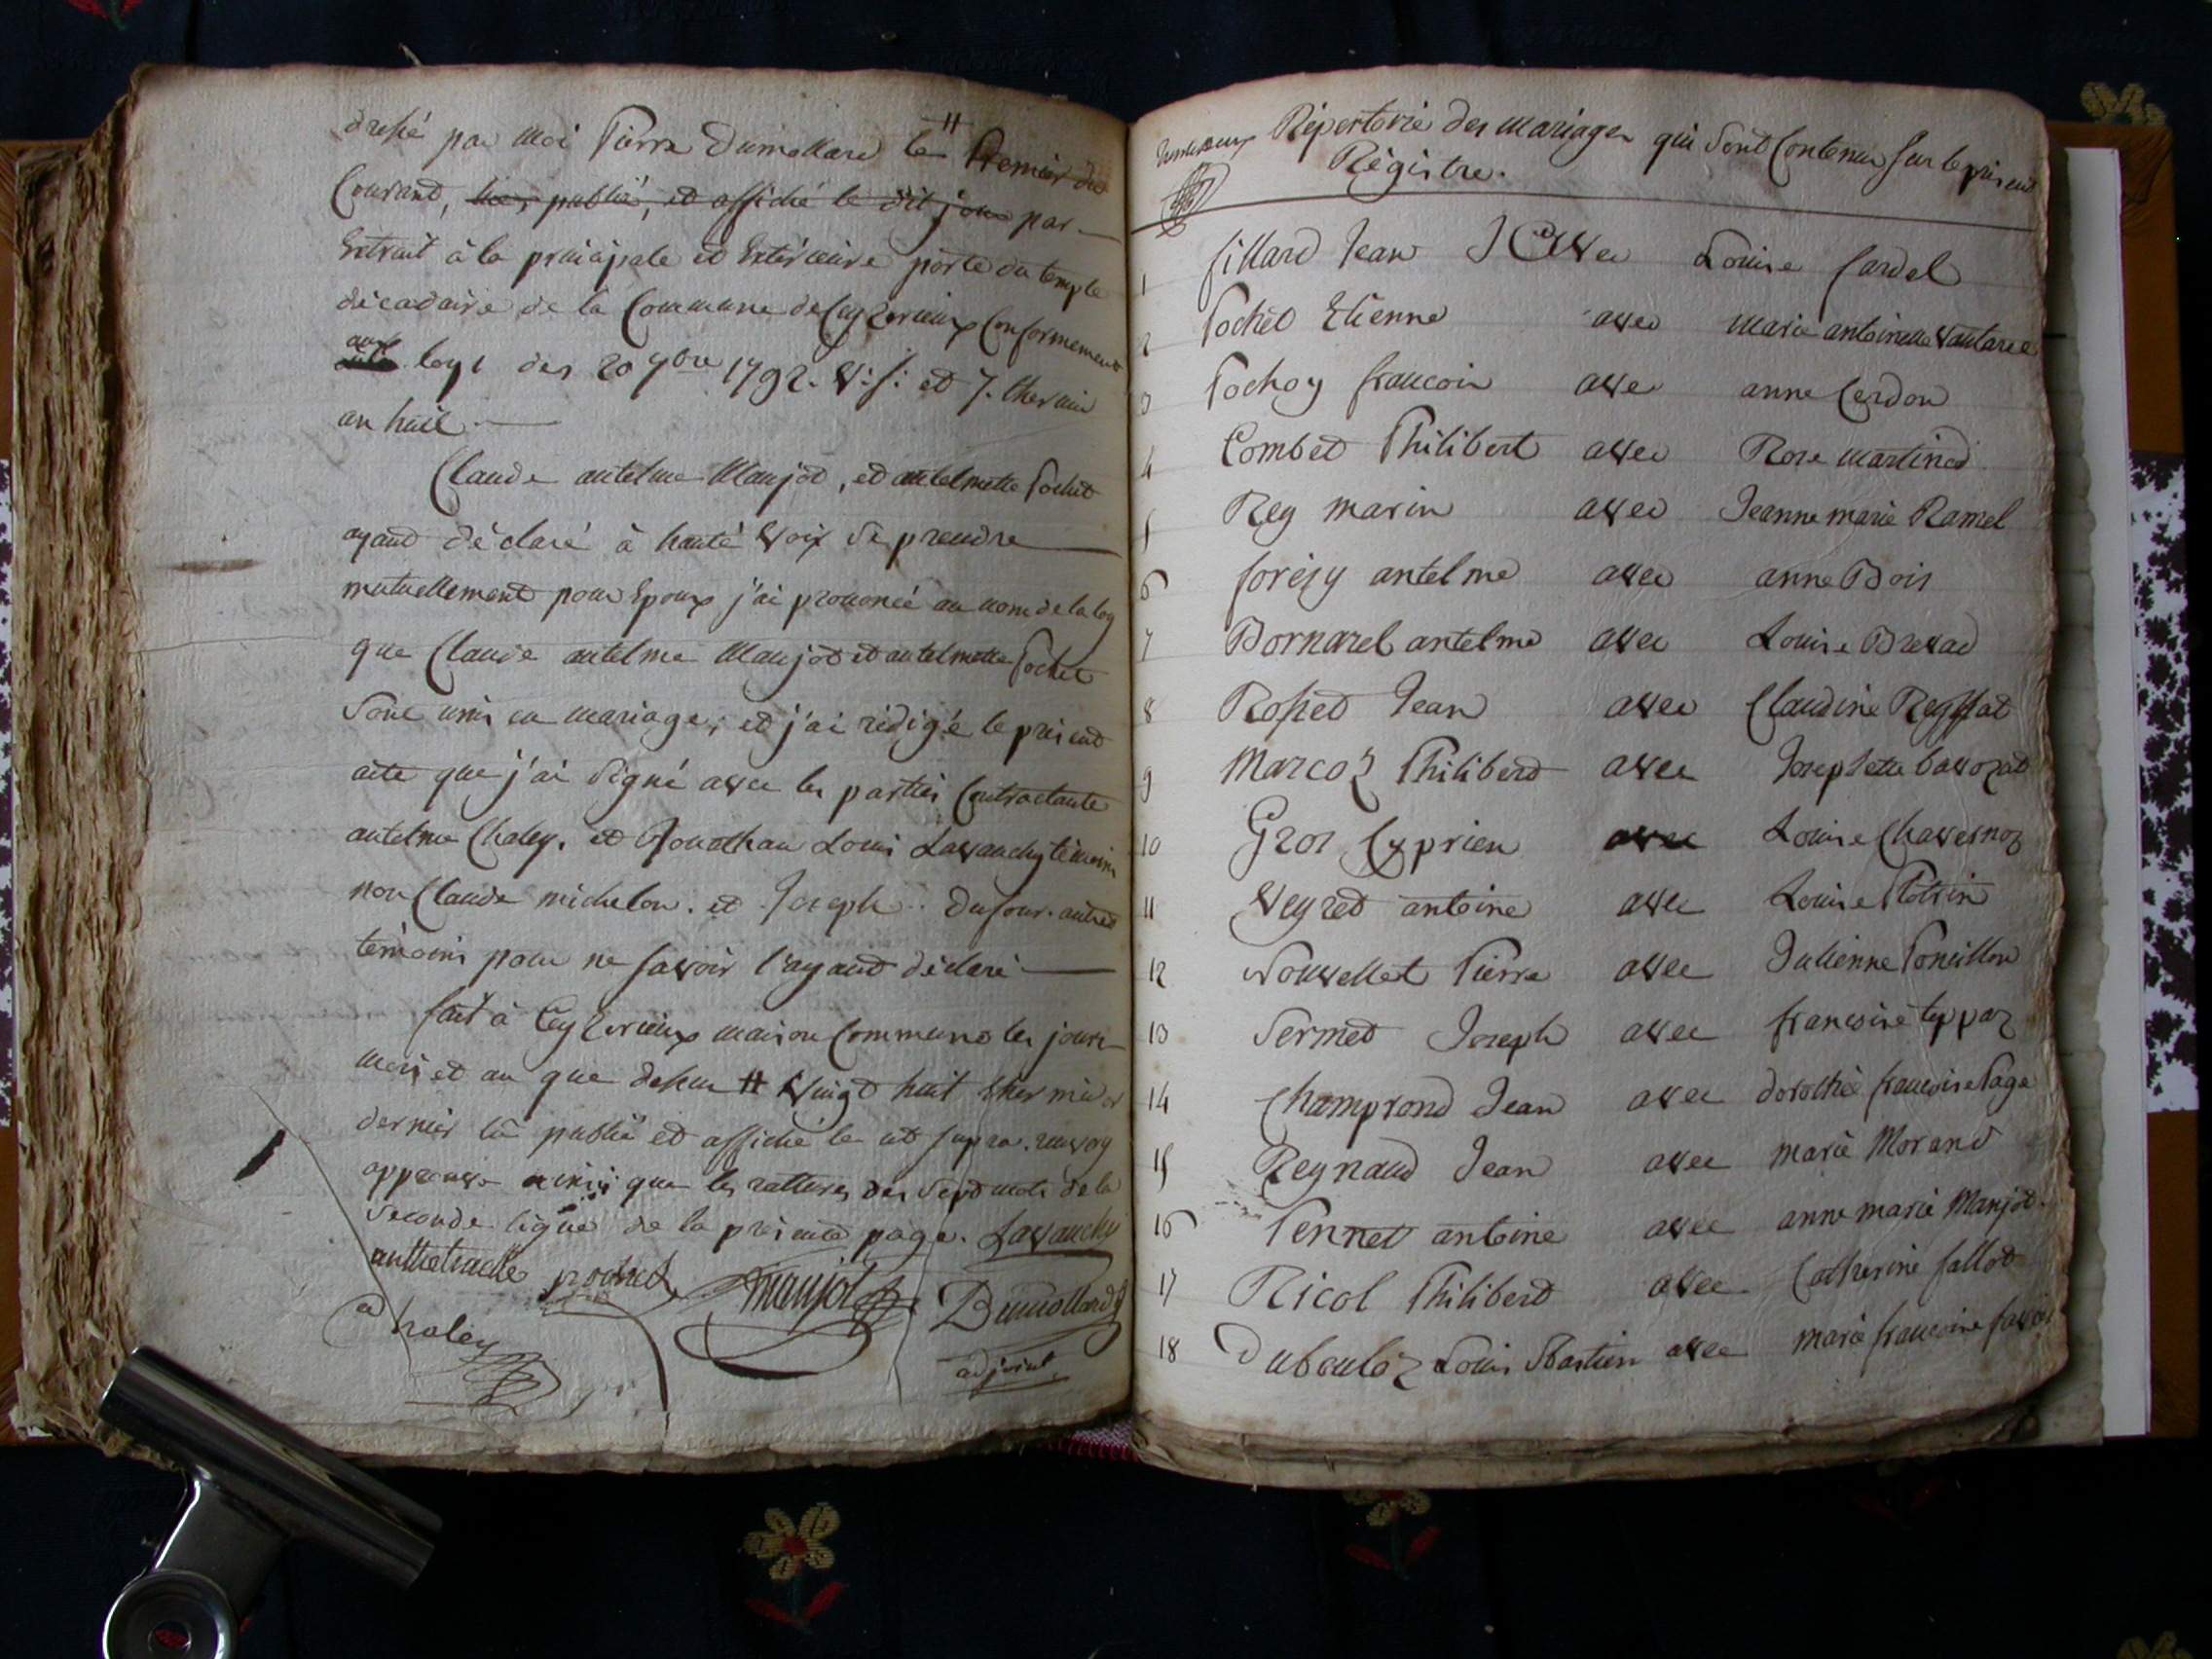 dressé par moi Pierre Dumollard le # premier du
Courant, lue, publié, et affiché le dit jour par
Extrait à la principale et Extérieure porte du temple
décadaire de la Commune de Ceyzerieux Conformement
aux loys des 20 7bre 1792. V: S: et 7. thermid
an huit.
Claude antelme Manjot, et antelmette Pochet
ayant déclaré à haute voix se prendre
mutuellement pour Epoux j'ai prononcé au nom de la loy
que Claude antelme Manjot et antelmette Pochet
sont unis en mariage; et j'ai rédigé le present
acte que j'ai signé avec les parties Contractante
antelme Chaley. et Jonathan Louis Lavanchy témoins
non Claude michelon. et Joseph Dufour. autres
temoins pour ne savoir l'ayant déclaré
fait à Ceyzerieux maison Commune les jours
mois et an que dessus # vingt huit thermidor
dernier lû publié et affiché le ut supra. renvoy
approuvé ainsi que les rattures des sept mots de la
seconde ligne de la presente page. Lavanchy
pochet Manjot Dumollard
a chaley
adjoint
Répertoire des mariages qui sont Contenus sur le présent
Régistre.
1 fillard Jean avec Louise Cardel
2 Pochet Etienne avec marie antoinette
3 Pochoy francois avec anne Cerdon
4 Combet Philibert avec Rose martinod
5 Rey marin avec Jeanne marie Ramel
6 forésy antelme avec anne Bois
7 Bornarel antelme avec Louise Bravad
8 Rosset Jean avec Claudine Reyssat
9 Marcoz Philiberd avec Josephette bavozat
10 Gros Cyprien avec Louise Chavesnoz
11 Veyret antoine avec Louise Poitrin
12 Nouvellet Pierre avec Julienne Ponillon
13 Sermet Joseph avec francoise teppaz
14 Champrond Jean avec dorothée francoise Page
15 Reynaud Jean avec marie Morand
16 Pernet antoine avec anne marie Manjot.
17 Ricol Philiberd avec Catherine fallod
18 Dubouloz Louis Bastien avec marie francoise